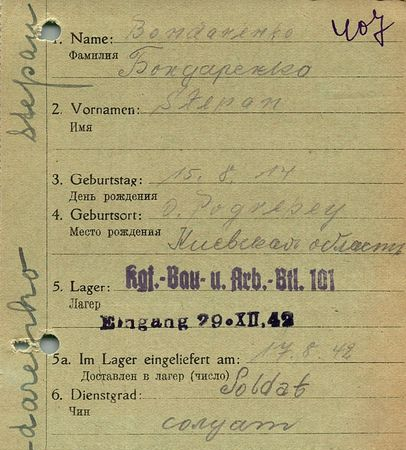 407
1. Name: Bondarenko
Фамилия Бондаренко
2. Vornamen: Stepan
Имя
3. Geburtstag: 15. 8. 14
День рождения
4. Geburtsort: O.
Место рождения Киевская области
5. Lager: Kgf.-Bau- u. Arb.-Btl. 101
Лагер
Eingang 29.XII.42
5a. Im Lager eingeliefert am: 17. 8. 42
Доставлен в лагер (число)
6. Dienstgrad: Soldat
Чин солдат
-darenko stepan